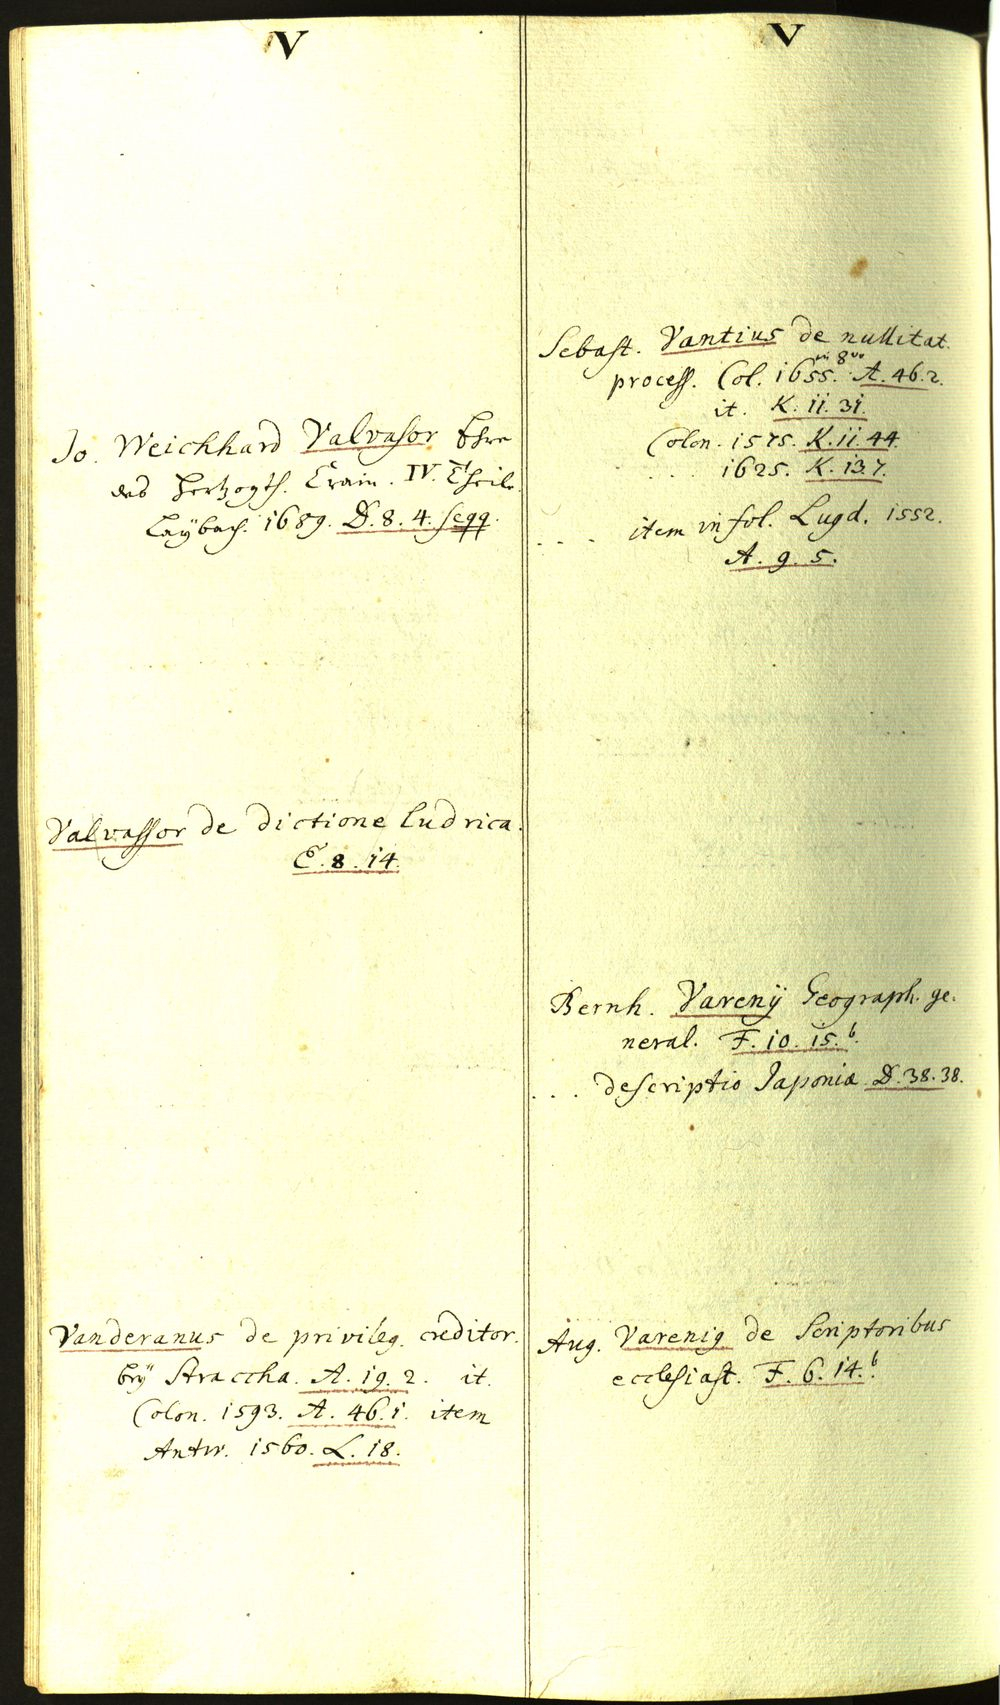 V
Jo. Weichhard Valvasor Ehre
des Hertzogth. Crain. IV. Theile.
Laÿbach. 1689. D. 8. 4. seqq.
Valvassor de dictione ludrica.
E. 8. 14.
Vanderanus de privileg. creditor.
beÿ Straccha. A. 19. 2. it.
Colon. 1593. A. 46. 1. item
Antw. 1560. L. 18.
V
Sebast. Vantius de nullitat.
process. Col. 1655. in 8vo A. 46. 2.
it. K. 11. 31.
Colon. 1575. K. 11. 44.
. . . 1625. K. 13. 7.
. . . item in fol. Lugd. 1552.
A. 9. 5.
Bernh. Varenÿ Geograph. ge-
neral. F. 10. 15. b.
. . . descriptio Japoniæ D. 38. 38.
Aug. Varenig de Scriptoribus
ecclesiast. F. 6. 14. b.